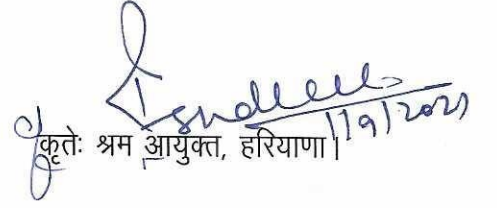 1/9/2021
कृतेः श्रम आयुक्त, हरियाणा।